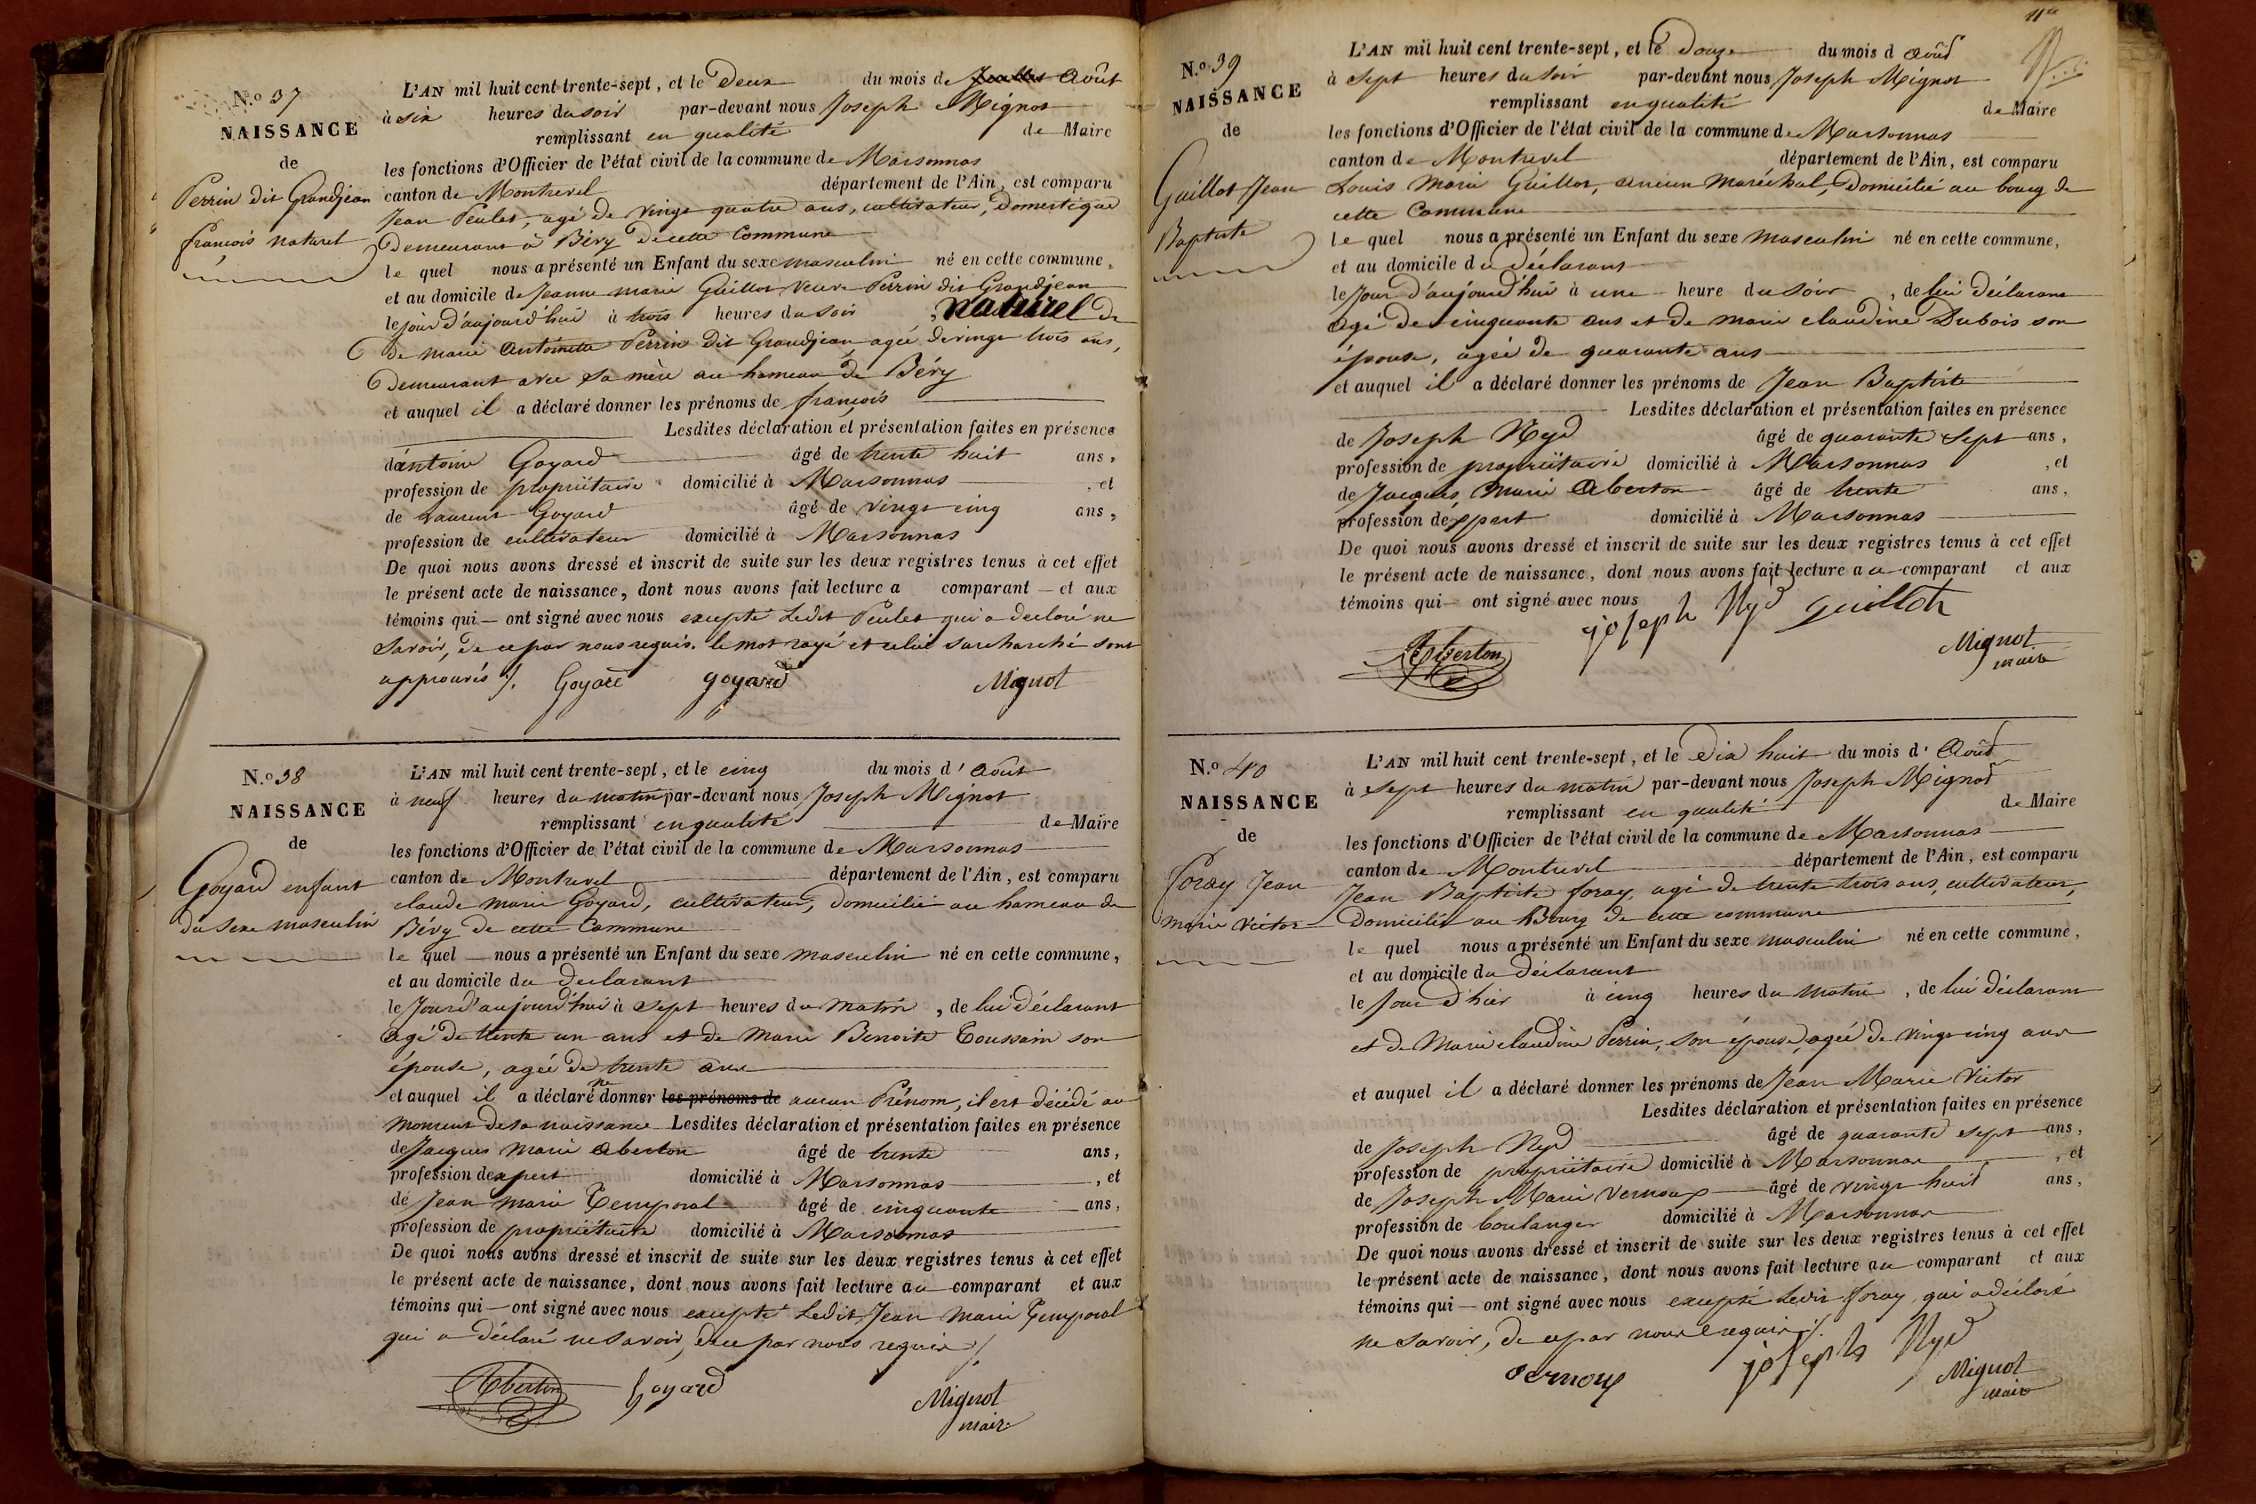 N.º 37
NAISSANCE
de
Perrin dit Grandjean
françois naturel
L'AN mil huit cent trente-sept, et le Deux du mois de Juillet Août
à six heures du soir par-devant nous Joseph Mignot
remplissant en qualité de Maire
les fonctions d'Officier de l'état civil de la commune de Marsonnas
canton de Montrevel département de l'Ain, est comparu
Jean Peulet, agé de vingt quatre ans, cultivateur, Domestique
Demeurant à Bévy de cette Commune
le quel nous a présenté un Enfant du sexe masculin né en cette commune,
et au domicile de Jeanne marie Guillot veuve Perrin dit Grandjean
le jour d'aujourd'hui à trois heures du soir, naturel de
De marie Antoinette Perrin dit Grandjean, agée de vingt trois ans,
Demeurant avec sa mère au hameau de Bévy
et auquel il a déclaré donner les prénoms de françois
Lesdites déclaration et présentation faites en présence
d'antoine Goyard âgé de trente huit ans,
profession de propriétaire domicilié à Marsonnas, et
de Laurent Goyard âgé de vingt cinq ans,
profession de cultivateur domicilié à Marsonnas
De quoi nous avons dressé et inscrit de suite sur les deux registres tenus à cet effet
le présent acte de naissance, dont nous avons fait lecture a comparant et aux
témoins qui ont signé avec nous excepté Ledit Peulet qui a déclaré ne
Savoir, de ce par nous requis. le mot rayé et celui surcharché sont
approuvés /. Goyard goyard Mignot
N.º 38
NAISSANCE
de
Goyard enfant
du sexe masculin
L'AN mil huit cent trente-sept, et le cinq du mois d'Août
à neuf heures du matin par-devant nous Joseph Mignot
remplissant en qualité de Maire
les fonctions d'Officier de l'état civil de la commune de Marsonnas
canton de Montrevel département de l'Ain, est comparu
claude marie Goyard, cultivateur, domicilié au hameau de
Bévy de cette Commune
le quel nous a présenté un Enfant du sexe masculin né en cette commune,
et au domicile du déclarant
le Jour d'aujourd'hui à sept heures du matin, de lui déclarant
agé de trente un ans et de Marie Benoite Toussain son
épouse, agée de trente ans
et auquel il a déclaré ne donner les prénoms de aucun Prénom, il est décédé au
moment de sa naissance Lesdites déclaration et présentation faites en présence
de Jacques Marie Aberton âgé de trente ans,
profession d'expert domicilié à Marsonnas, et
de Jean marie Temporal âgé de cinquante ans,
profession de propriétaire domicilié à Marsonnas
De quoi nous avons dressé et inscrit de suite sur les deux registres tenus à cet effet
le présent acte de naissance, dont nous avons fait lecture au comparant et aux
témoins qui ont signé avec nous excepté Ledit Jean Marie Temporal
qui a déclaré ne savoir, de ce par nous requis /.
Aberton Goyard Mignot
maire
N.º 39
NAISSANCE
de
Guillot Jean
Baptiste
L'AN mil huit cent trente-sept, et le Douze du mois d Août
à sept heures du soir par-devant nous Joseph Mignot
remplissant en qualité de Maire
les fonctions d'Officier de l'état civil de la commune de Marsonnas
canton de Montrevel département de l'Ain, est comparu
Louis Marie Guillot, ancien Maréchal, Domicilié au bourg de
cette Commune
le quel nous a présenté un Enfant du sexe masculin né en cette commune,
et au domicile du déclarant
le Jour d'aujourd'hui à une heure du soir, de lui déclarant
agé de cinquante ans et de marie claudine Dubois son
épouse, agée de quarante ans
et auquel il a déclaré donner les prénoms de Jean Baptiste
Lesdites déclaration et présentation faites en présence
de Joseph Nyd âgé de quarante sept ans,
profession de propriétaire domicilié à Marsonnas, et
de Jacques Marie Aberton âgé de trente ans,
profession d'expert domicilié à Marsonnas
De quoi nous avons dressé et inscrit de suite sur les deux registres tenus à cet effet
le présent acte de naissance, dont nous avons fait lecture au comparant et aux
témoins qui ont signé avec nous
joseph Nyd Guillot
Aberton Mignot
maire
N.º 40
NAISSANCE
de
foray Jean
marie Victor
L'AN mil huit cent trente-sept, et le Dix huit du mois d'Août
à sept heures du matin par-devant nous Joseph Mignot
remplissant en qualité de Maire
les fonctions d'Officier de l'état civil de la commune de Marsonnas
canton de Montrevel département de l'Ain, est comparu
Jean Baptiste foray, agé de trente trois ans, cultivateur,
Domicilié au Bourg de cette commune
le quel nous a présenté un Enfant du sexe masculin né en cette commune,
et au domicile du déclarant
le Jour d'hier à cinq heures du matin, de lui déclarant
et de Marie claudine Perrin, son épouse, agée de vingt cinq ans
et auquel il a déclaré donner les prénoms de Jean Marie Victor
Lesdites déclaration et présentation faites en présence
de Joseph Nyd âgé de quarante sept ans,
profession de propriétaire domicilié à Marsonnas, et
de Joseph Marie Vernoux âgé de vingt huit ans,
profession de boulanger domicilié à Marsonnas
De quoi nous avons dressé et inscrit de suite sur les deux registres tenus à cet effet
le présent acte de naissance, dont nous avons fait lecture au comparant et aux
témoins qui ont signé avec nous excepté Ledit foray qui a déclaré
ne savoir, de ce par nous requis /.
vernoux joseph Nyd Mignot
maire